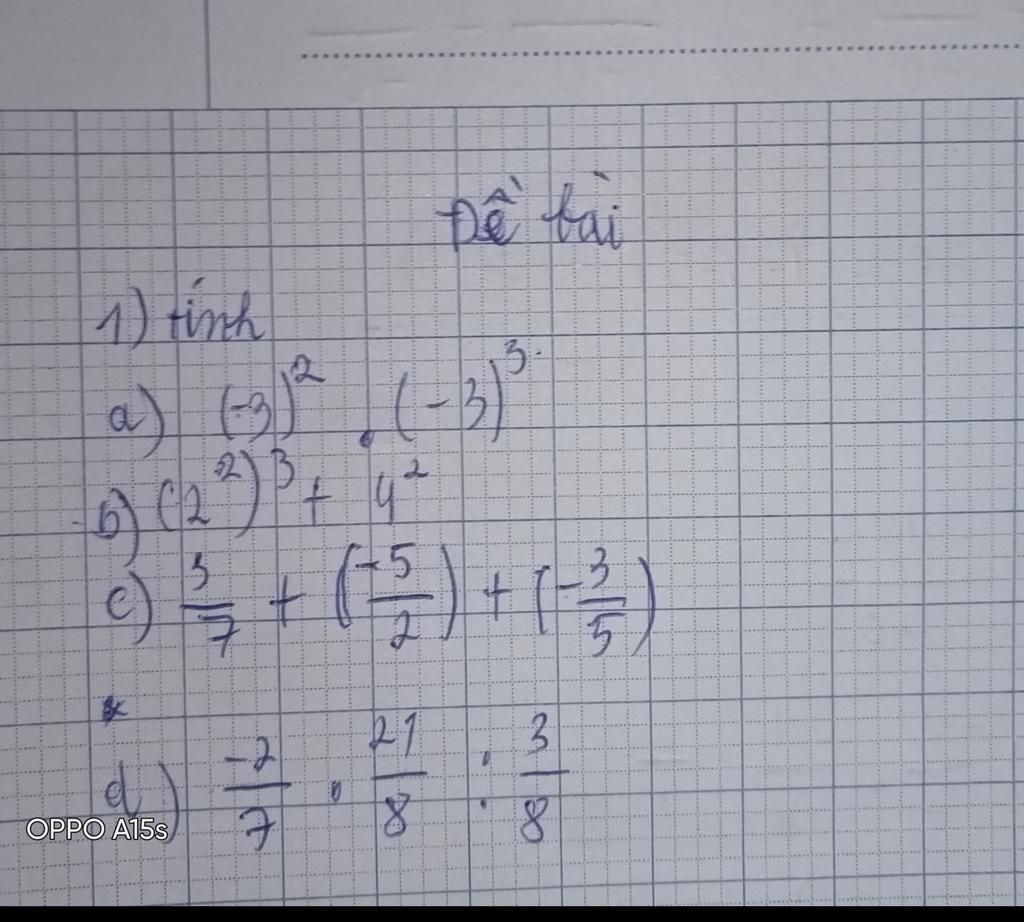 Đề bài
1) tính
a) (-3)² . (-3)³
b) (2²)³ + 4²
c) 3/7 + (-5/2) + (-3/5)
d) -2/7 . 21/8 : 3/8
OPPO A15s